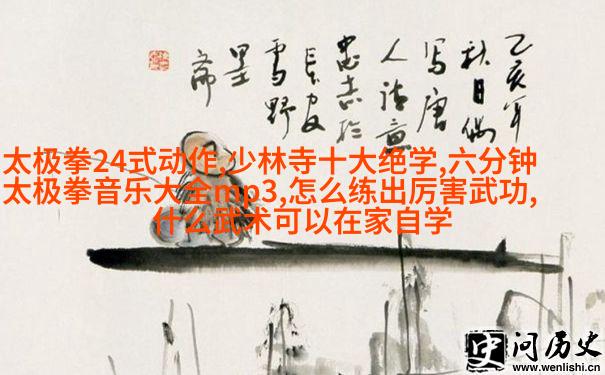 乙亥年
秋日偶
写唐
人诗意
忠志於
長安
雪野
墨
斋
太极拳24式动作,少林寺十大绝学,六分钟
太极拳音乐大全mp3,怎么练出厉害武功,
什么武术可以在家自学
问历史
www.wenlishi.cn